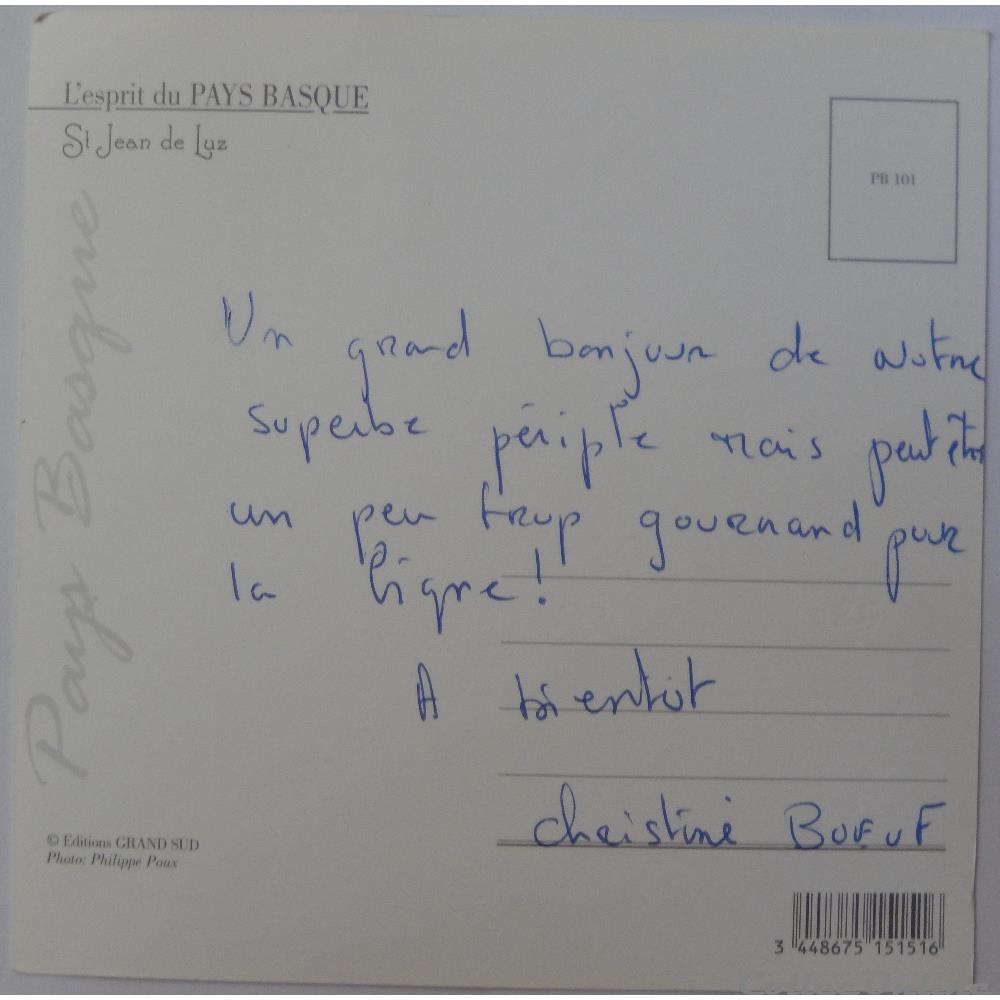 L'esprit du PAYS BASQUE
St Jean de Luz
PB 101
Pays Basque
Un grand bonjour de notre
superbe périple mais peut être
un peu trop gourmand pour
la ligne !
A bientot
Christine BOEUF
© Editions GRAND SUD
Photo: Philippe Poux
3 448675 151516